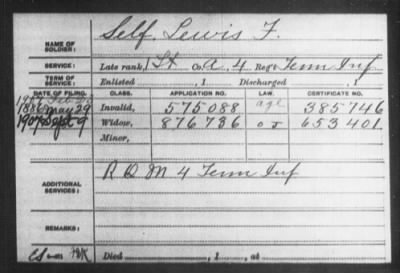 Self, Lewis F.
NAME OF SOLDIER:
SERVICE: Late rank, 1 Lt Co. A, 4 Reg't Tenn Inf
TERM OF SERVICE: Enlisted , 1 Discharged , 1
DATE OF FILING. CLASS. APPLICATION NO. LAW. CERTIFICATE NO.
1886 May 29 Invalid, 575088 age 385746
1907 Sept 9 Widow, 876736 653401
Minor,
ADDITIONAL SERVICES: R Q M 4 Tenn Inf
REMARKS:
Died , 1 , at